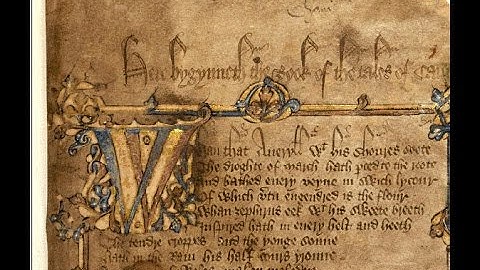 Here bygynneth the Book of the tales of Caunt
Whan that Averyll wt his shoures soote
The droghte of march hath pced to the roote
And bathed euery veyne in swich lycour
Of which vtu engendred is the flour
Whan zephirus eek wt his sweete breeth
Inspired hath in euery holt and heeth
The tendre croppes and the yonge sonne
Hath in the Ram his half cours yronne